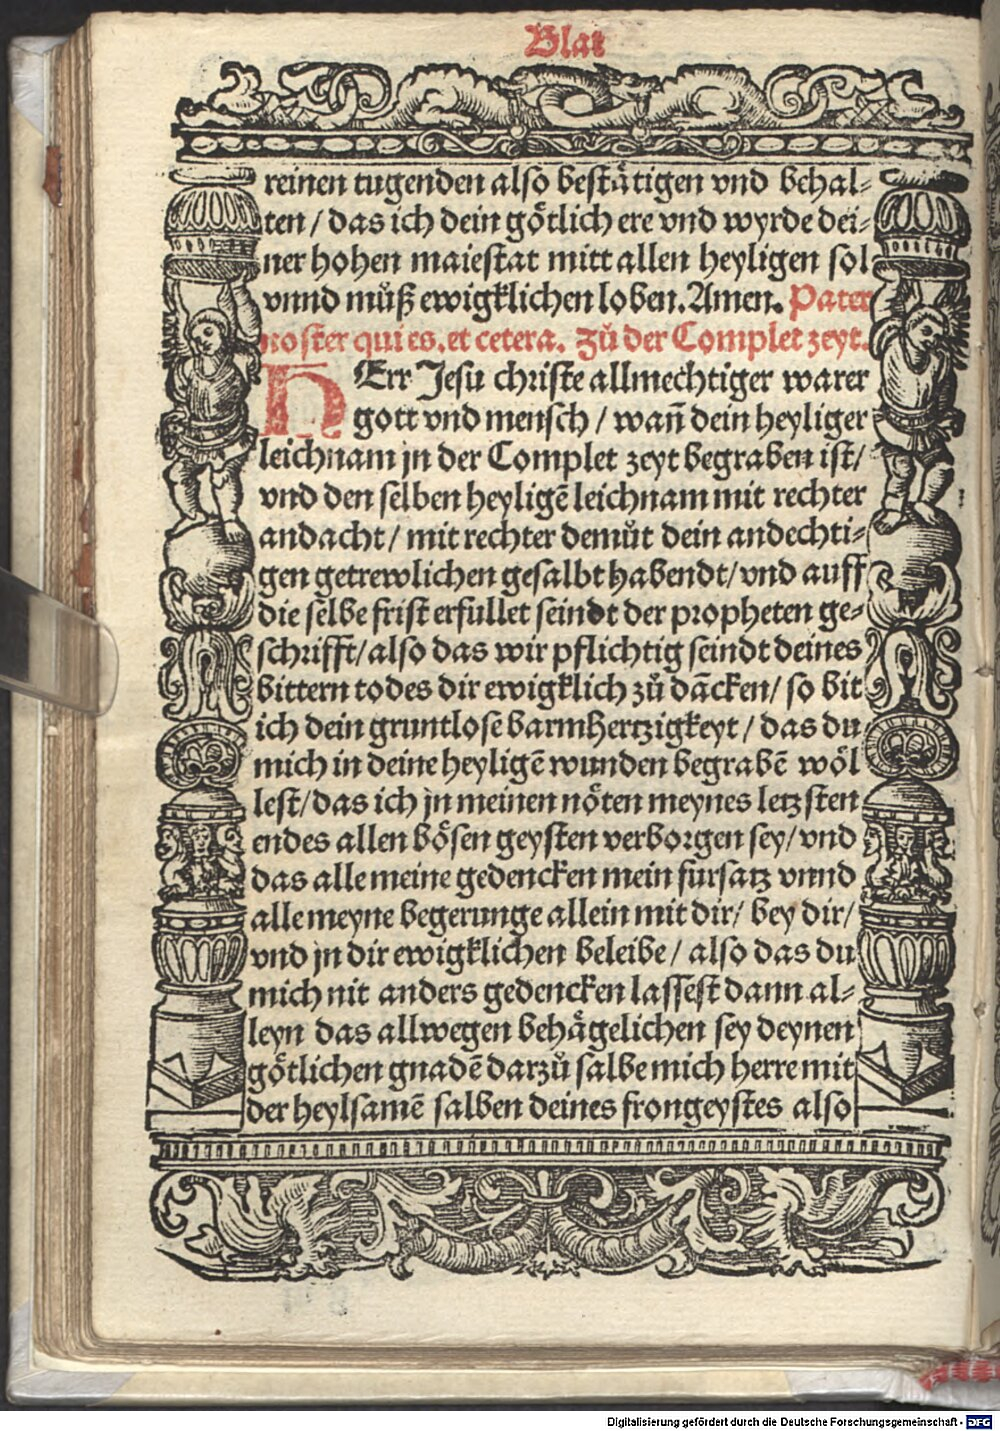 Blat
reinen tugenden also bestaͤtigen vnd behal⸗
ten / das ich dein goͤtlich ere vnd wyrde dei⸗
ner hohen maiestat mitt allen heyligen sol
vnnd muͦß ewigklichen loben. Amen. Pater
noster qui es. et cetera. Zuͦ der Complet zeyt.
HErr Jesu christe allmechtiger warer
gott vnd mensch / wañ dein heyliger
leichnam jn der Complet zeyt begraben ist/
vnd den selben heyligē leichnam mit rechter
andacht / mit rechter demuͦt dein andechti⸗
gen getrewlichen gesalbt habendt/ vnd auff
die selbe frist erfullet seindt der propheten ge⸗
schrifft/ also das wir pflichtig seindt deines
bittern todes dir ewigklich zuͦ dācken/ so bit
ich dein gruntlose barmhertzigkeyt / das du
mich in deine heyligē wunden begrabē woͤl
lest/ das ich jn meinen noͤten meynes letzsten
endes allen boͤsen geysten verborgen sey/ vnd
das alle meine gedencken mein fursatz vnnd
alle meyne begerunge allein mit dir/ bey dir/
vnd jn dir ewigklichen beleibe / also das du
mich nit anders gedencken lassest dann al⸗
leyn das allwegen behaͤgelichen sey deynen
goͤtlichen gnadē darzuͦ salbe mich herre mit
der heylsamē salben deines frongeystes also
Digitalisierung gefördert durch die Deutsche Forschungsgemeinschaft - DFG